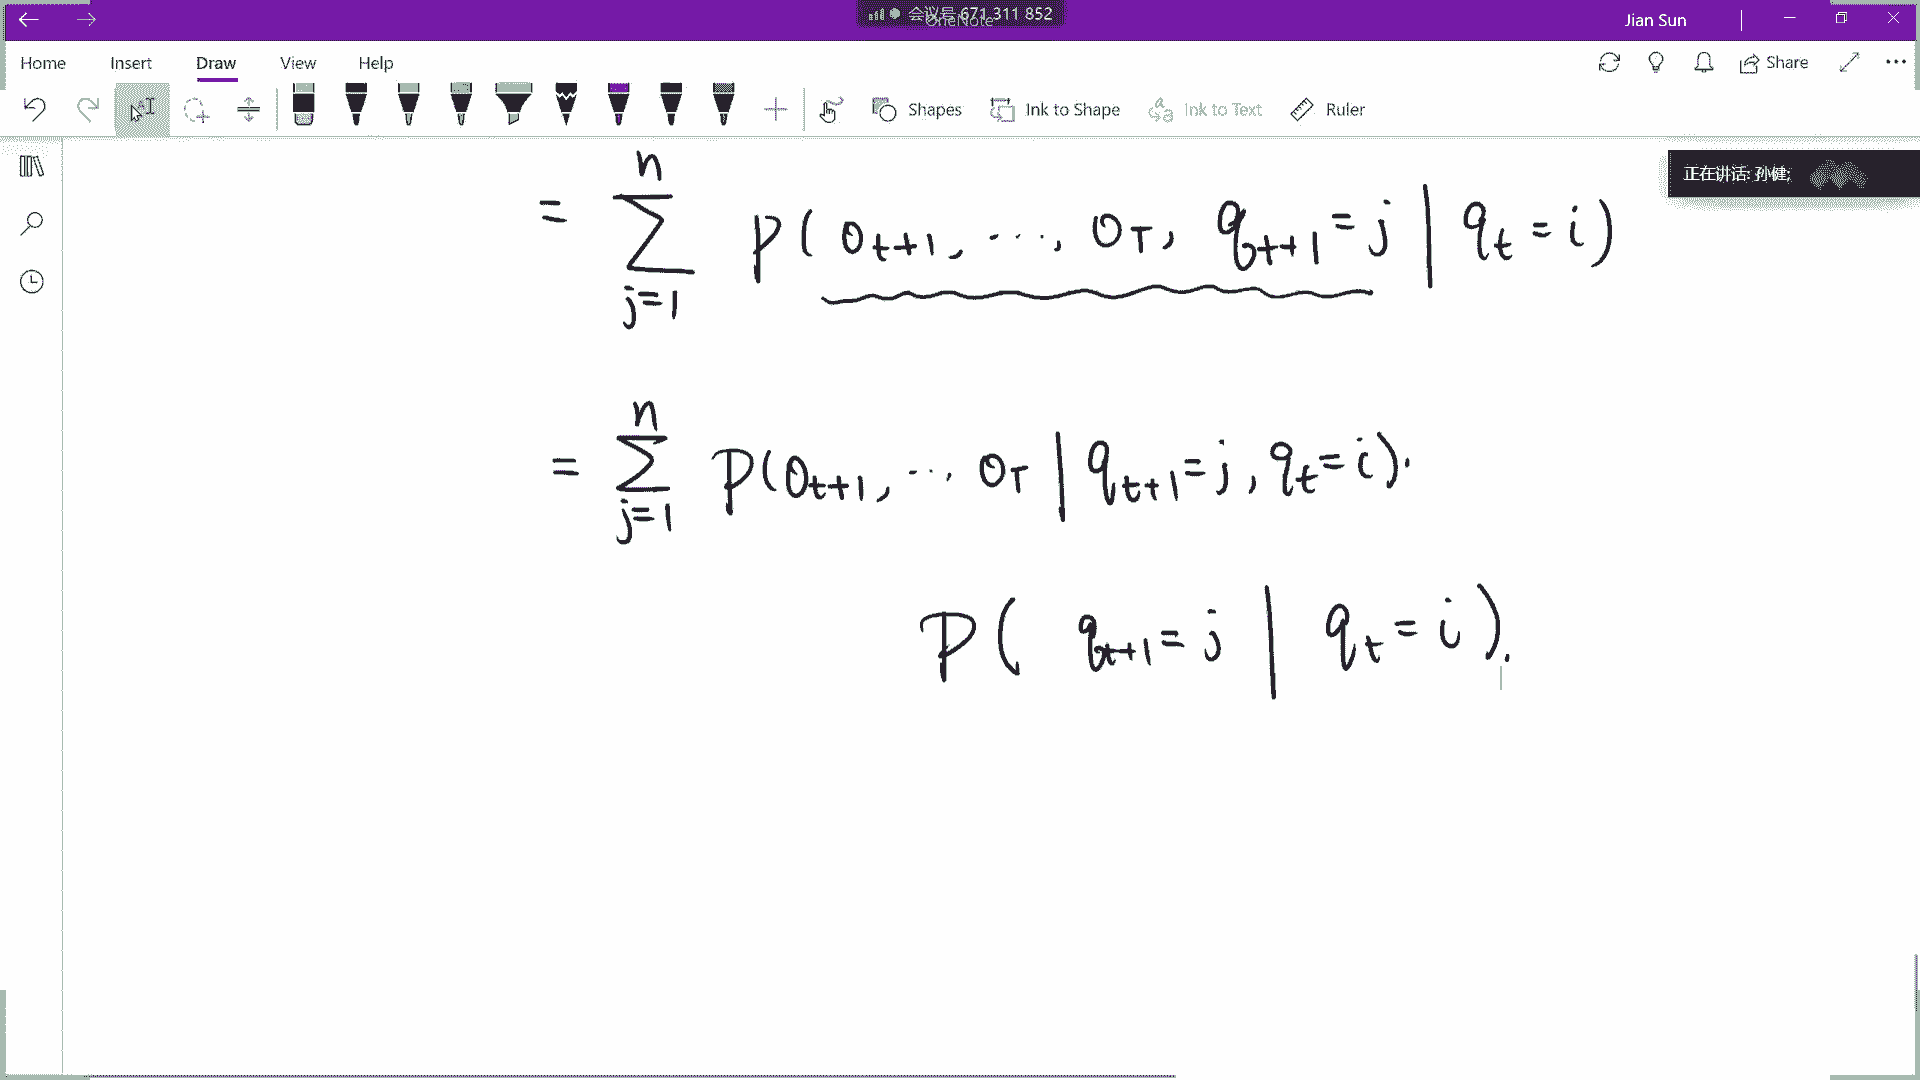 会议号 671 311 852
OneNote
Jian Sun
Home Insert Draw View Help
Share
Shapes Ink to Shape Ink to Text Ruler
正在讲话: 孙健;
= \sum_{j=1}^{n} P(O_{t+1}, ..., O_T, q_{t+1}=j | q_t=i)
= \sum_{j=1}^{n} P(O_{t+1}, ..., O_T | q_{t+1}=j, q_t=i).
P(q_{t+1}=j | q_t=i).